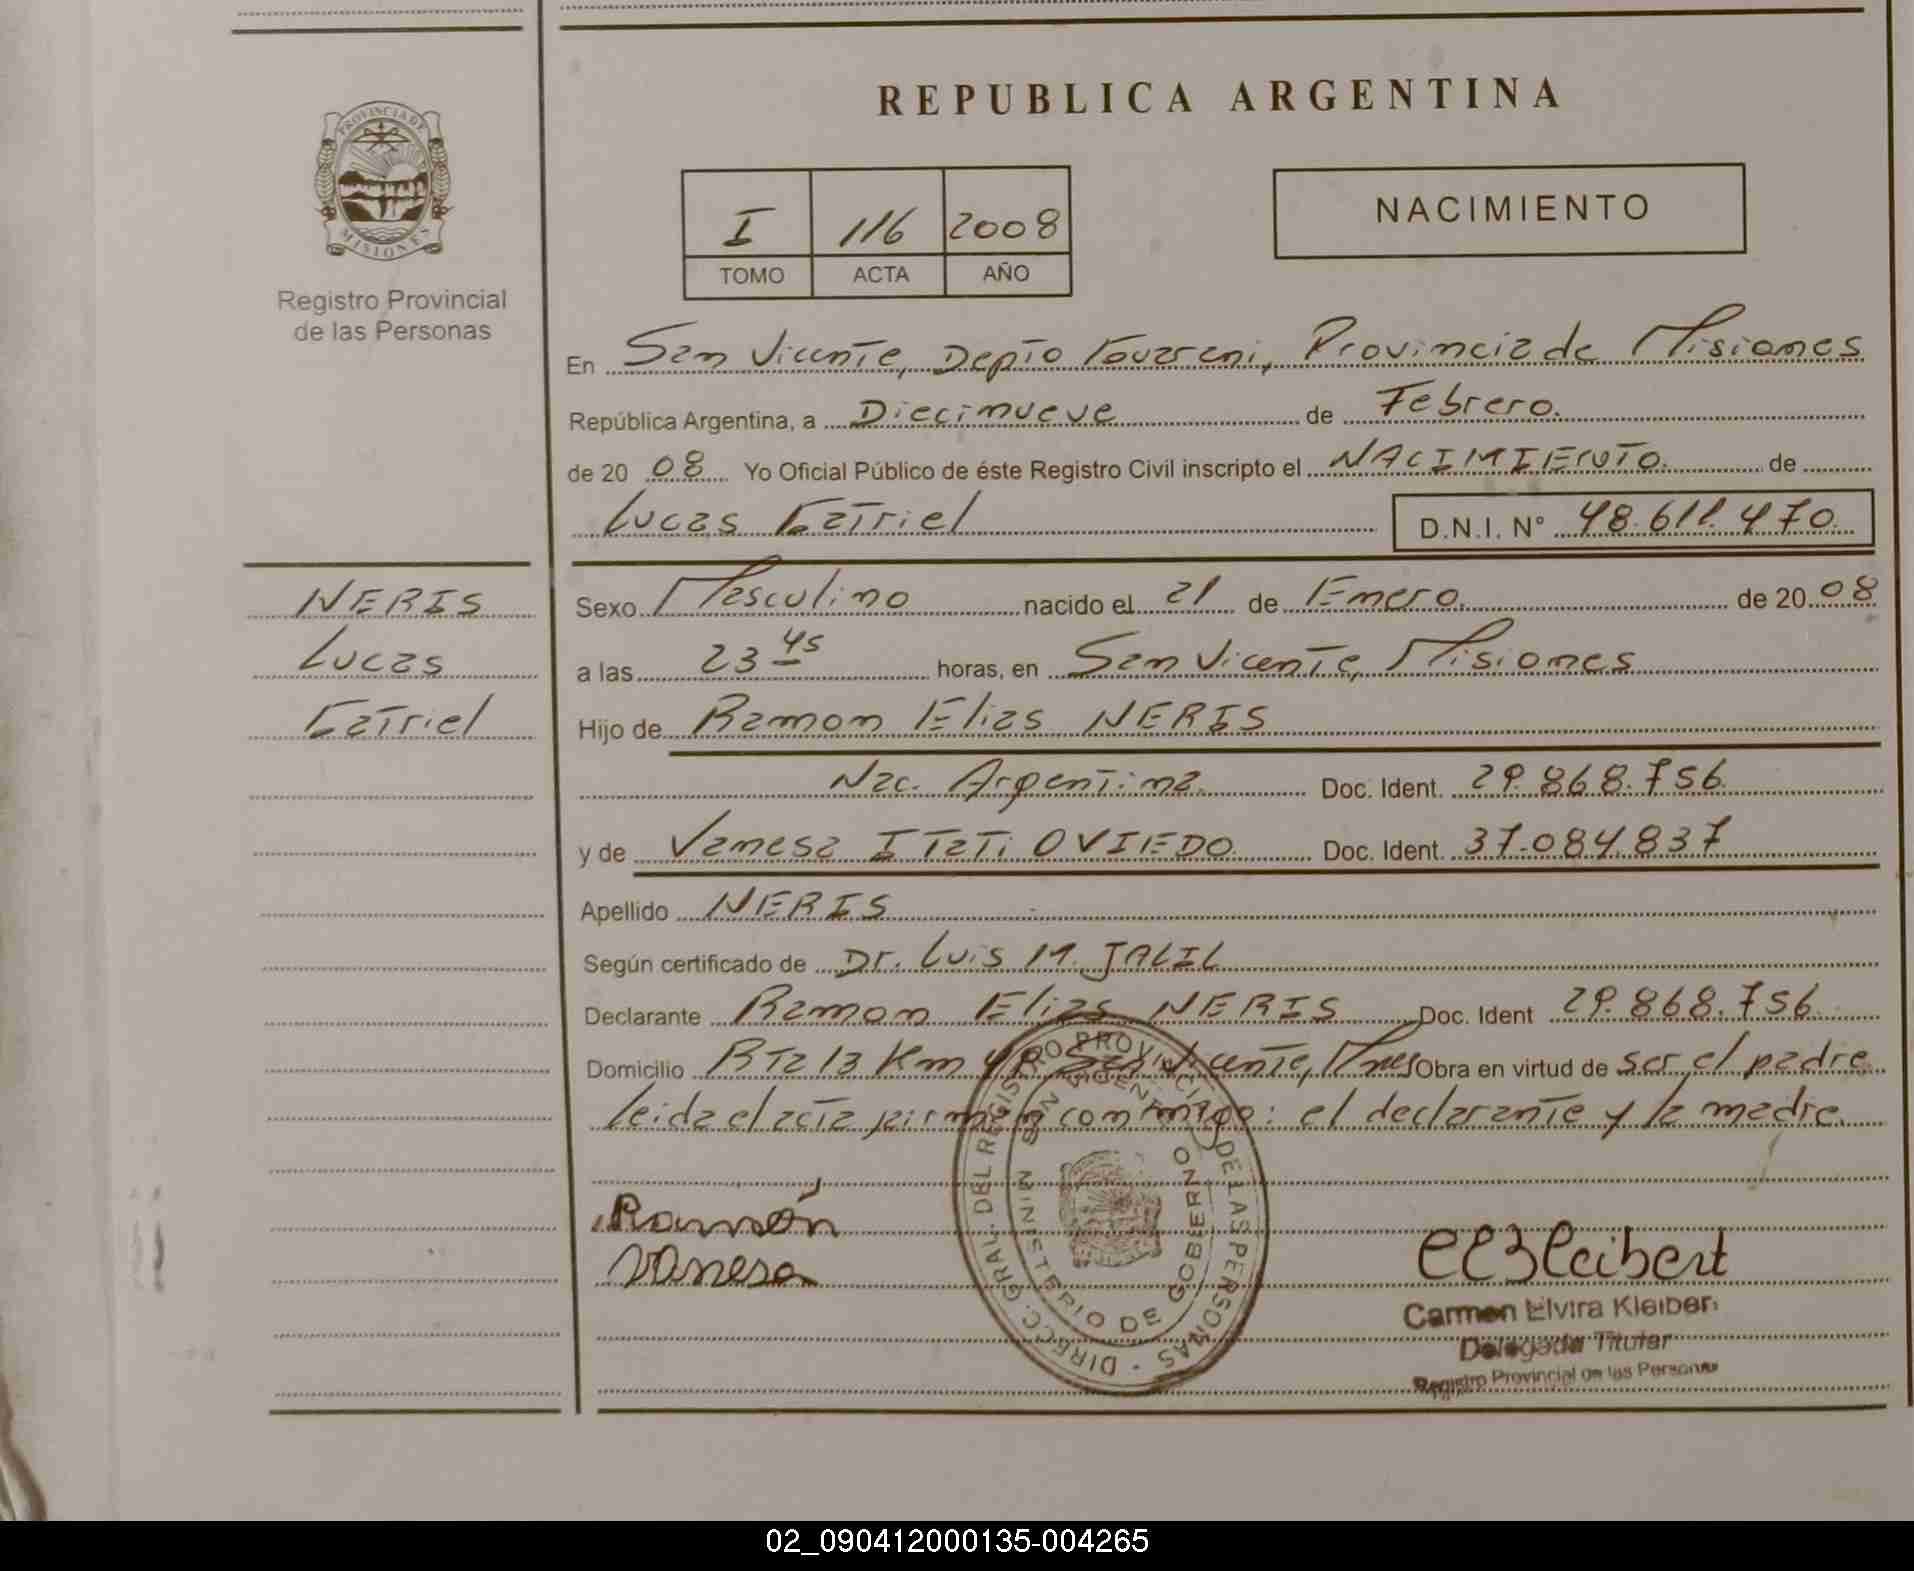 REPUBLICA ARGENTINA
PROVINCIA DE MISIONES
Registro Provincial
de las Personas
I 116 2008
TOMO ACTA AÑO
NACIMIENTO
En San Vicente, Depto Guarani, Provincia de Misiones
República Argentina, a Diecinueve de Febrero.
de 20 08 Yo Oficial Público de éste Registro Civil inscripto el NACIMIENTO. de
Lucas Gatriel D.N.I. N° 48.611.470.
NERIS
Lucas
Gatriel
Sexo Masculino nacido el 21 de Enero. de 20 08
a las 23 45 horas, en San Vicente, Misiones
Hijo de Ramon Elias NERIS
Nac. Argentina. Doc. Ident. 29.868.756.
y de Vanesa ITati OVIEDO Doc. Ident. 37.084.837
Apellido NERIS
Según certificado de Dr. Luis M. JALIL
Declarante Ramon Elias NERIS Doc. Ident 29.868.756.
Domicilio RTa 13 Km San Vicente, Mnes Obra en virtud de ser el padre
leida el acta firman conmigo: el declarante y la madre.
DIRECC. GRAL. DEL REGISTRO PROVINCIAL DE LAS PERSONAS
SAN VICENTE
MINISTERIO DE GOBERNO
Ramón
Vanesa
CEKleibert
Carmen Elvira Kleiber
Delegada Titular
Registro Provincial de las Personas
02_090412000135-004265